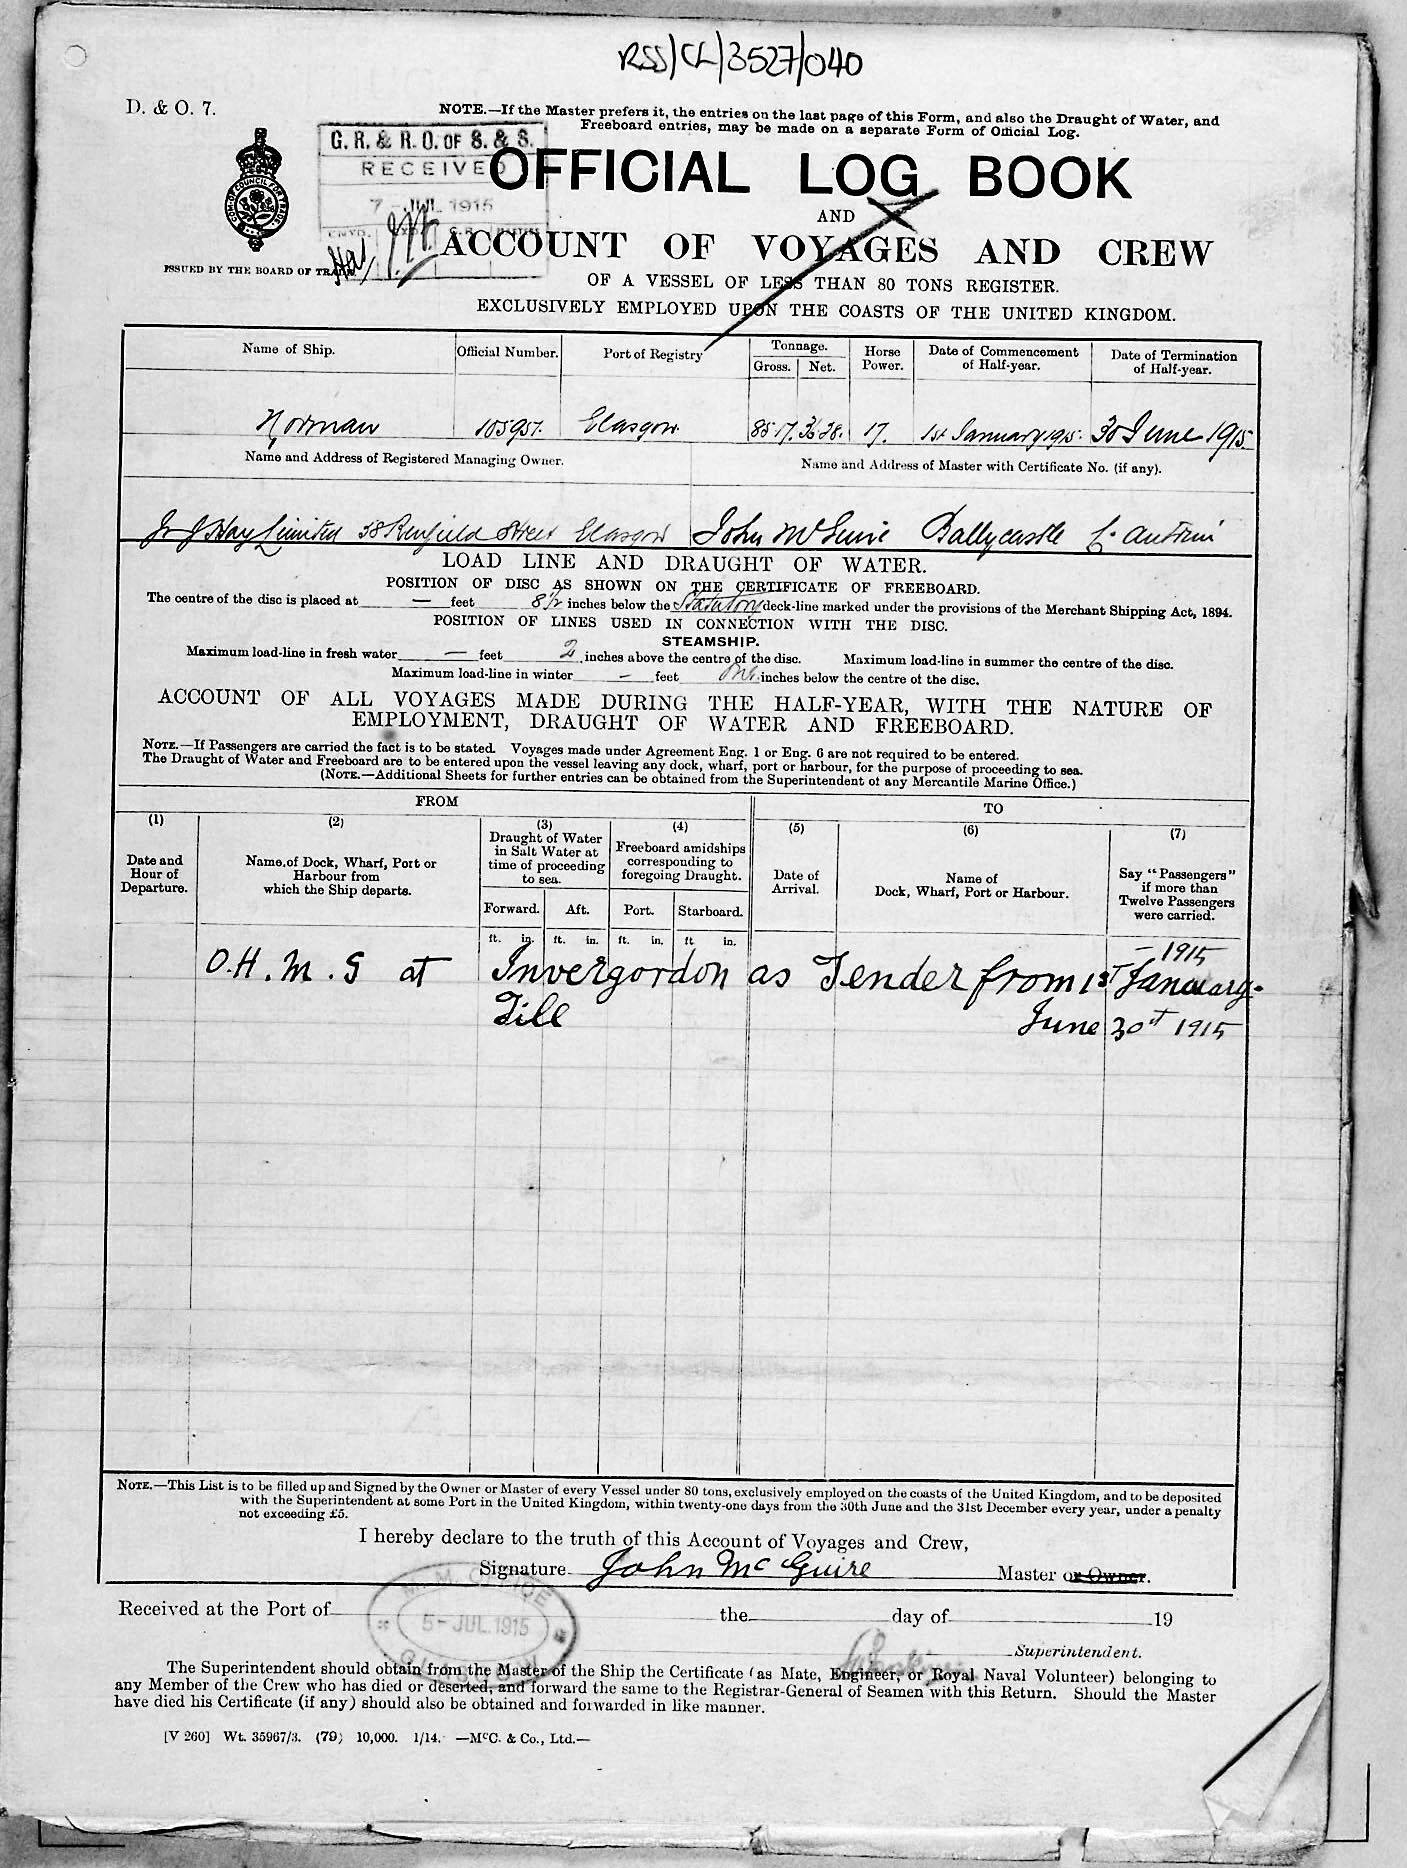 RSS/CL/3527/040
D. & O. 7.
NOTE.—If the Master prefers it, the entries on the last page of this Form, and also the Draught of Water, and
Freeboard entries, may be made on a separate Form of Official Log.
G. R. & R. O. OF S. & S.
RECEIVED
7 - JUL 1915
OFFICIAL LOG BOOK
AND
ACCOUNT OF VOYAGES AND CREW
ISSUED BY THE BOARD OF TRADE
OF A VESSEL OF LESS THAN 80 TONS REGISTER.
EXCLUSIVELY EMPLOYED UPON THE COASTS OF THE UNITED KINGDOM.
Name of Ship. Official Number. Port of Registry Tonnage. Gross. Net. Horse Power. Date of Commencement of Half-year. Date of Termination of Half-year.
Norman 105957. Glasgow. 85.17. 36.28. 17. 1st January 1915. 30 June 1915
Name and Address of Registered Managing Owner. Name and Address of Master with Certificate No. (if any).
J. & J. Hay Limited 58 Renfield Street Glasgow John McGuire Ballycastle Co. Antrim
LOAD LINE AND DRAUGHT OF WATER.
POSITION OF DISC AS SHOWN ON THE CERTIFICATE OF FREEBOARD.
The centre of the disc is placed at — feet 8½ inches below the Statutory deck-line marked under the provisions of the Merchant Shipping Act, 1894.
POSITION OF LINES USED IN CONNECTION WITH THE DISC.
STEAMSHIP.
Maximum load-line in fresh water — feet 2 inches above the centre of the disc. Maximum load-line in summer the centre of the disc.
Maximum load-line in winter - feet inches below the centre of the disc.
ACCOUNT OF ALL VOYAGES MADE DURING THE HALF-YEAR, WITH THE NATURE OF
EMPLOYMENT, DRAUGHT OF WATER AND FREEBOARD.
NOTE.—If Passengers are carried the fact is to be stated. Voyages made under Agreement Eng. 1 or Eng. 6 are not required to be entered.
The Draught of Water and Freeboard are to be entered upon the vessel leaving any dock, wharf, port or harbour, for the purpose of proceeding to sea.
(NOTE.—Additional Sheets for further entries can be obtained from the Superintendent of any Mercantile Marine Office.)
FROM TO
(1) (2) (3) (4) (5) (6) (7)
Date and Hour of Departure.
Name of Dock, Wharf, Port or Harbour from which the Ship departs.
Draught of Water in Salt Water at time of proceeding to sea.
Freeboard amidships corresponding to foregoing Draught.
Date of Arrival.
Name of Dock, Wharf, Port or Harbour.
Say "Passengers" if more than Twelve Passengers were carried.
Forward. Aft. Port. Starboard.
ft. in. ft. in. ft. in. ft. in.
- 1915
O.H.M.S at Invergordon as Tender from 1st January.
Till June 30st 1915
NOTE.—This List is to be filled up and Signed by the Owner or Master of every Vessel under 80 tons, exclusively employed on the coasts of the United Kingdom, and to be deposited
with the Superintendent at some Port in the United Kingdom, within twenty-one days from the 30th June and the 31st December every year, under a penalty
not exceeding £5.
I hereby declare to the truth of this Account of Voyages and Crew,
Signature John McGuire Master or Owner.
Received at the Port of the day of 19
M. M. OFFICE
5 - JUL. 1915
GLASGOW
Superintendent.
The Superintendent should obtain from the Master of the Ship the Certificate (as Mate, Engineer, or Royal Naval Volunteer) belonging to
any Member of the Crew who has died or deserted, and forward the same to the Registrar-General of Seamen with this Return. Should the Master
have died his Certificate (if any) should also be obtained and forwarded in like manner.
[V 260] Wt. 35967/3. (79) 10,000. 1/14. —McC. & Co., Ltd.—